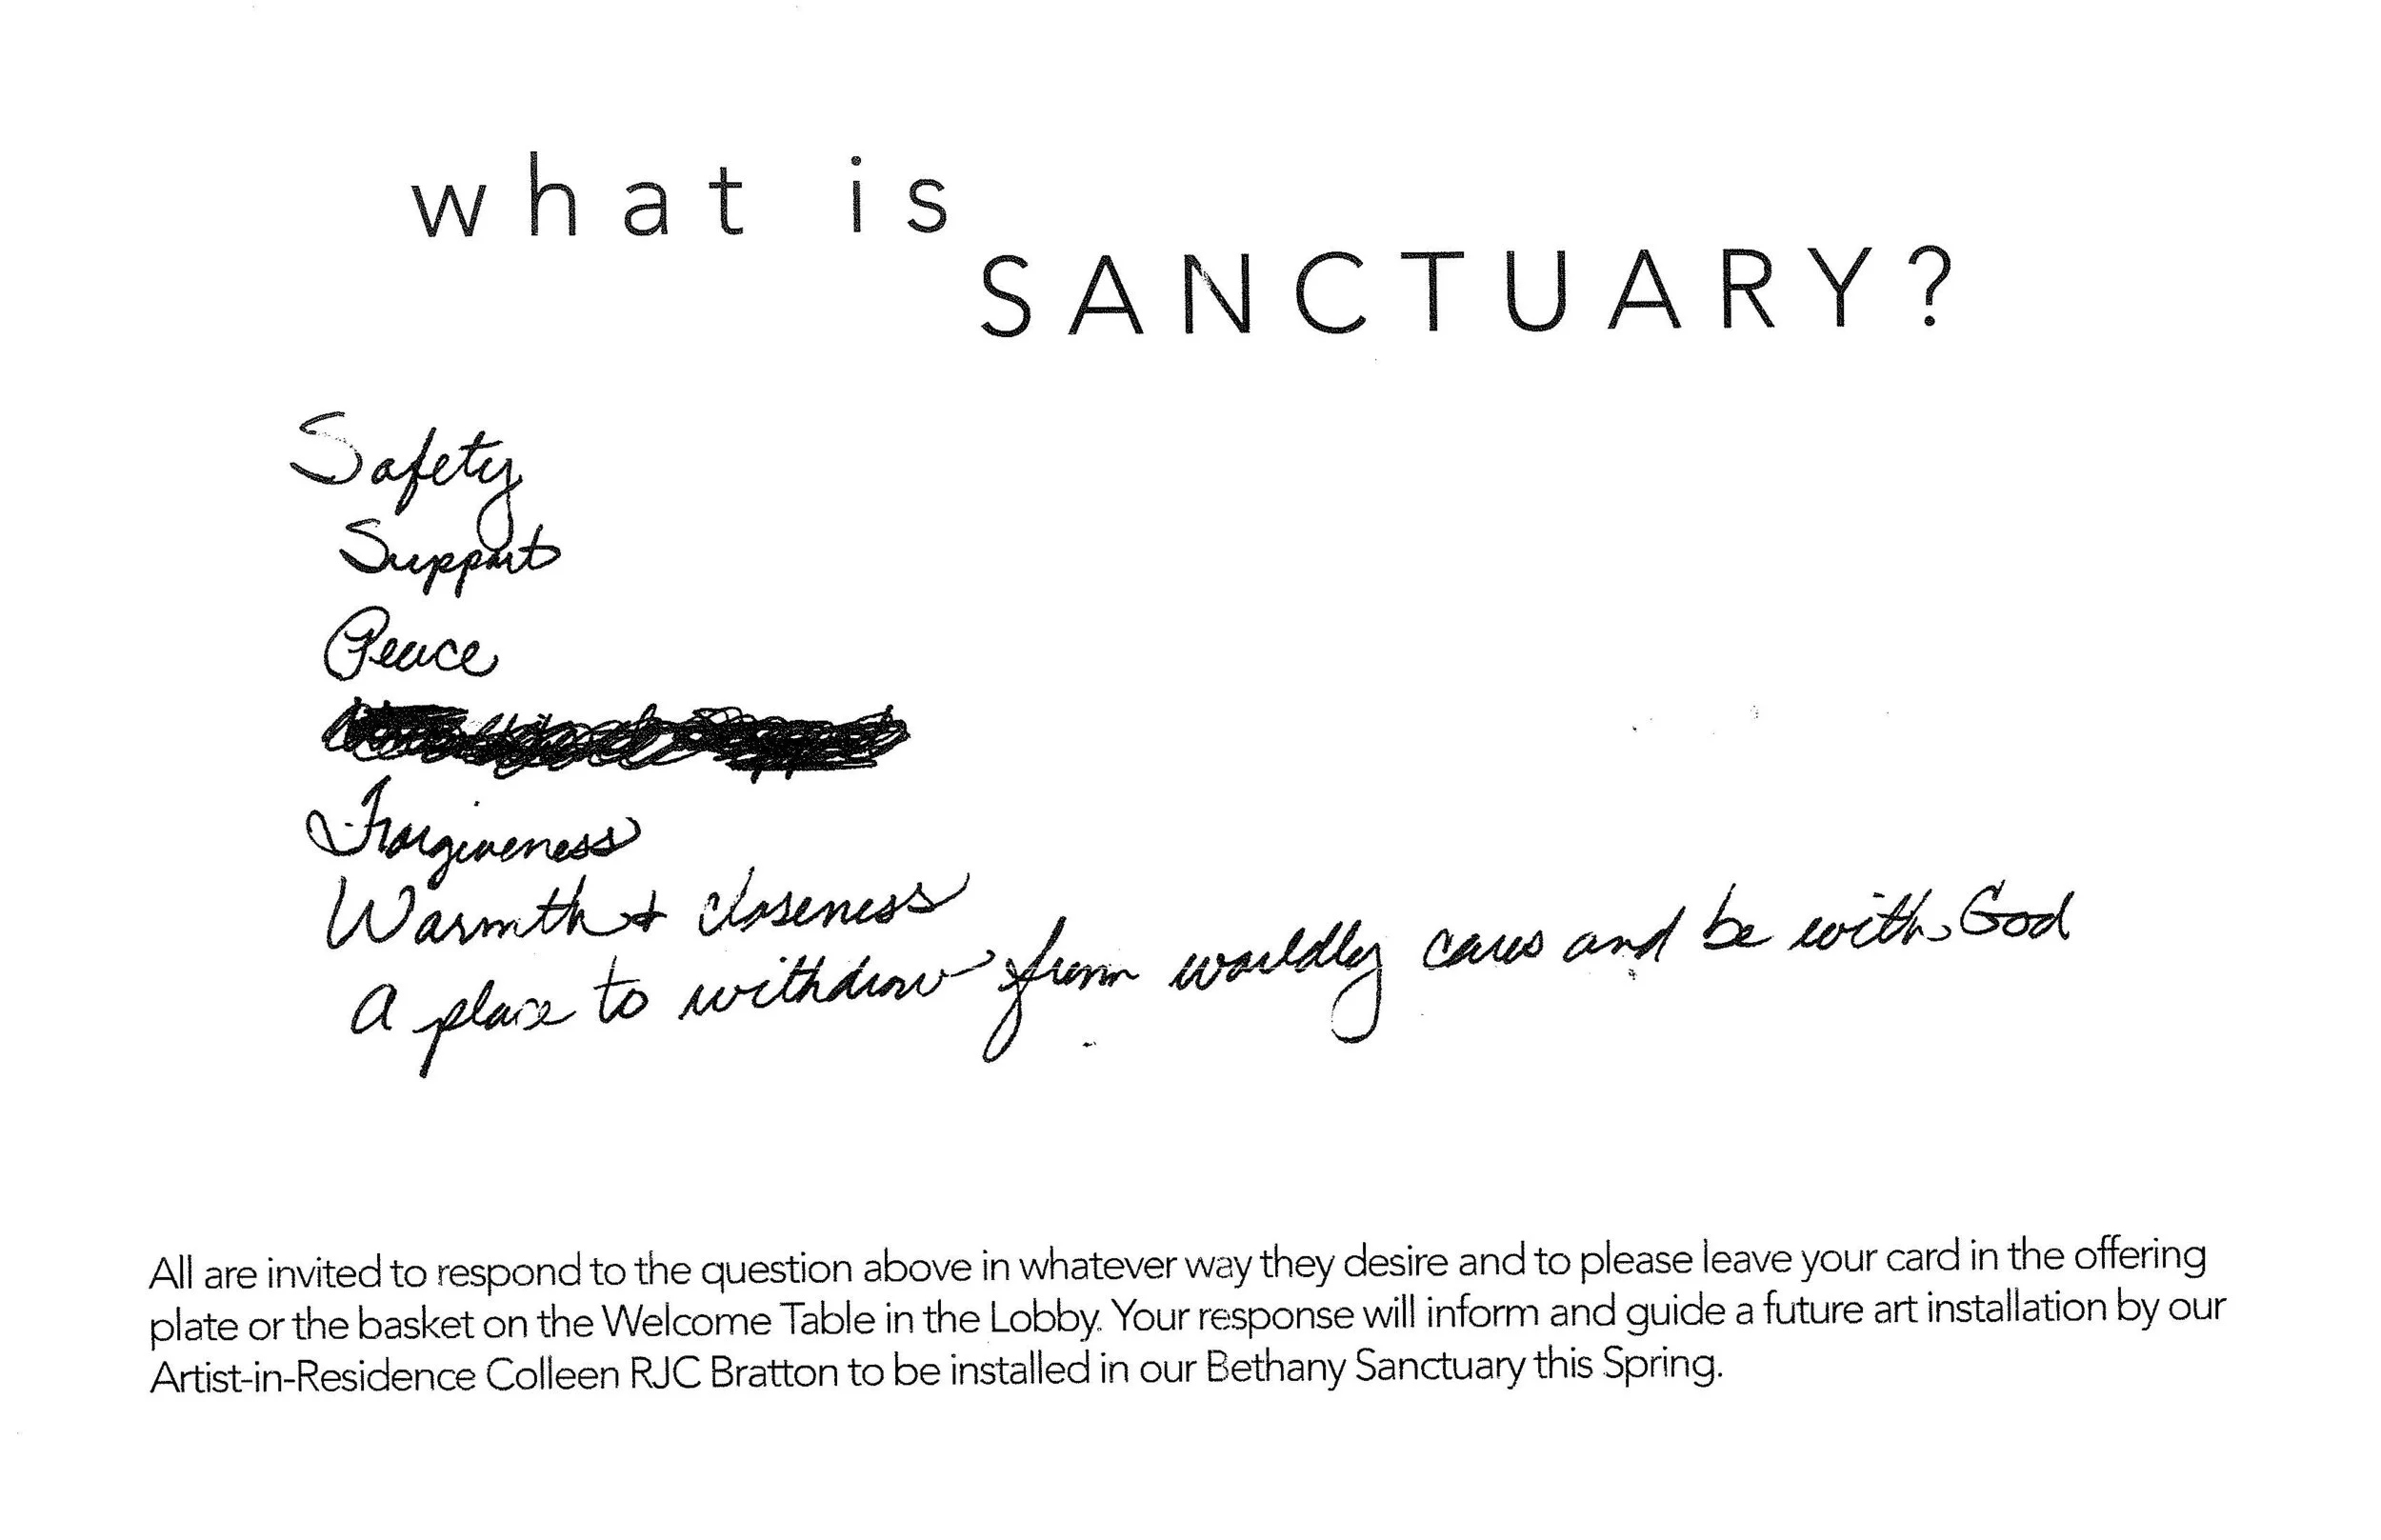 what is
SANCTUARY?
Safety
Support
Peace
Forgiveness
Warmth + closeness
A place to withdraw from worldly cares and be with God
All are invited to respond to the question above in whatever way they desire and to please leave your card in the offering
plate or the basket on the Welcome Table in the Lobby. Your response will inform and guide a future art installation by our
Artist-in-Residence Colleen RJC Bratton to be installed in our Bethany Sanctuary this Spring.